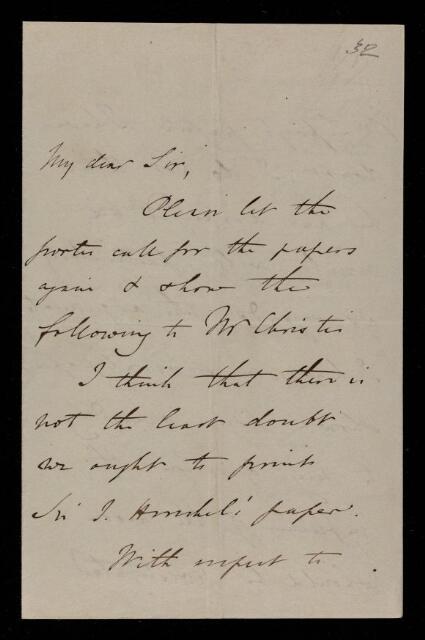 32
My dear Sir,
Please let the
porter call for the papers
again & show the
following to Mr Christie
I think that there is
not the least doubt
we ought to print
Sir J. Herschel's paper.
With respect to